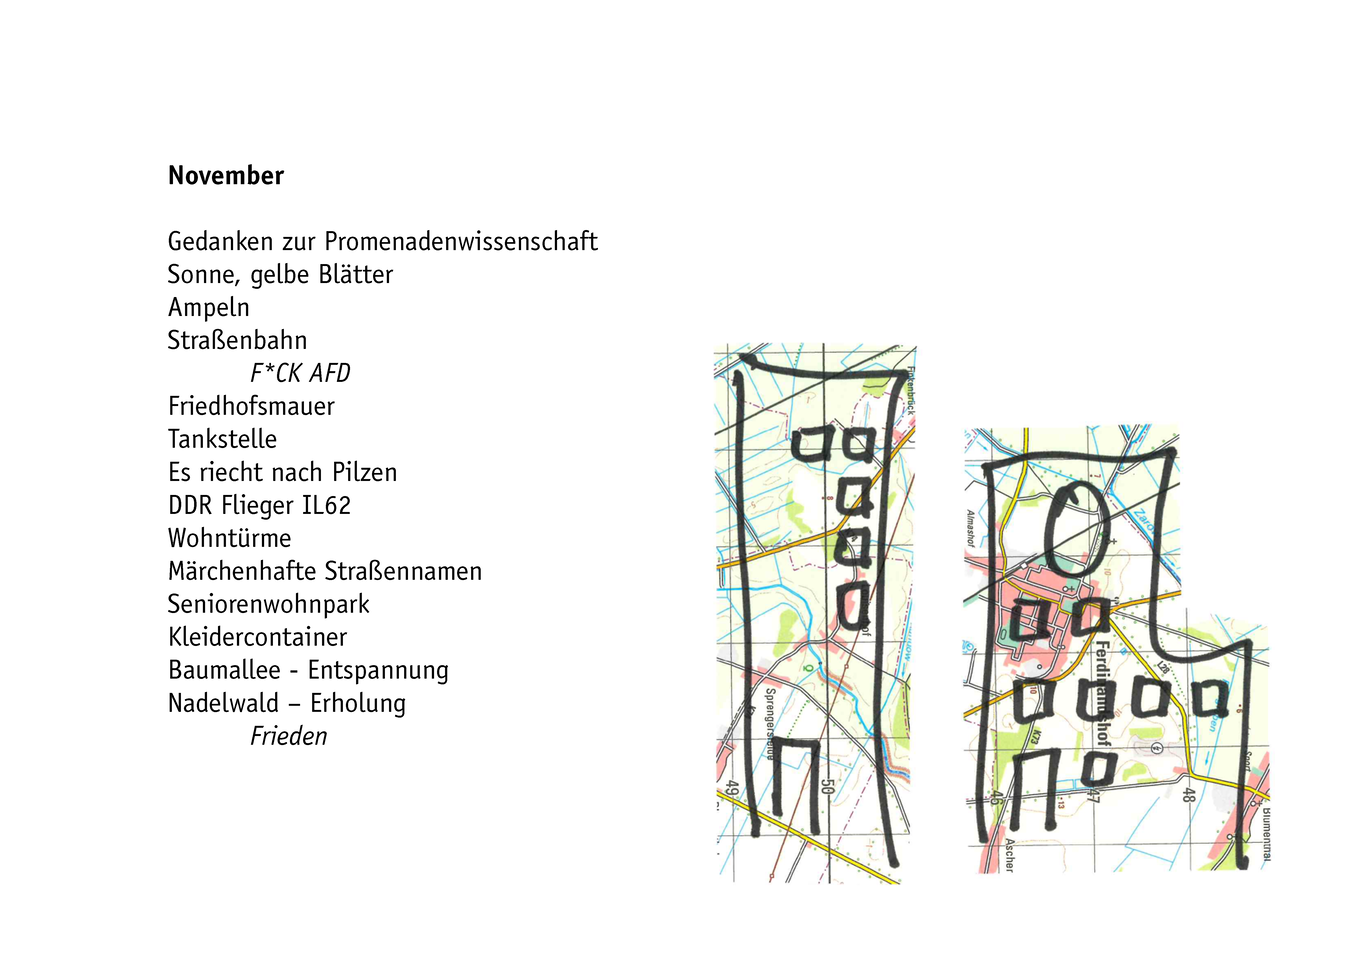 November
Gedanken zur Promenadenwissenschaft
Sonne, gelbe Blätter
Ampeln
Straßenbahn
F*CK AFD
Friedhofsmauer
Tankstelle
Es riecht nach Pilzen
DDR Flieger IL62
Wohntürme
Märchenhafte Straßennamen
Seniorenwohnpark
Kleidercontainer
Baumallee - Entspannung
Nadelwald – Erholung
Frieden
Finkenbrück
49
50
Almashof
Zaro
Ferdinandshof
L28
K73
46
47
48
Ascher
Blumenthal